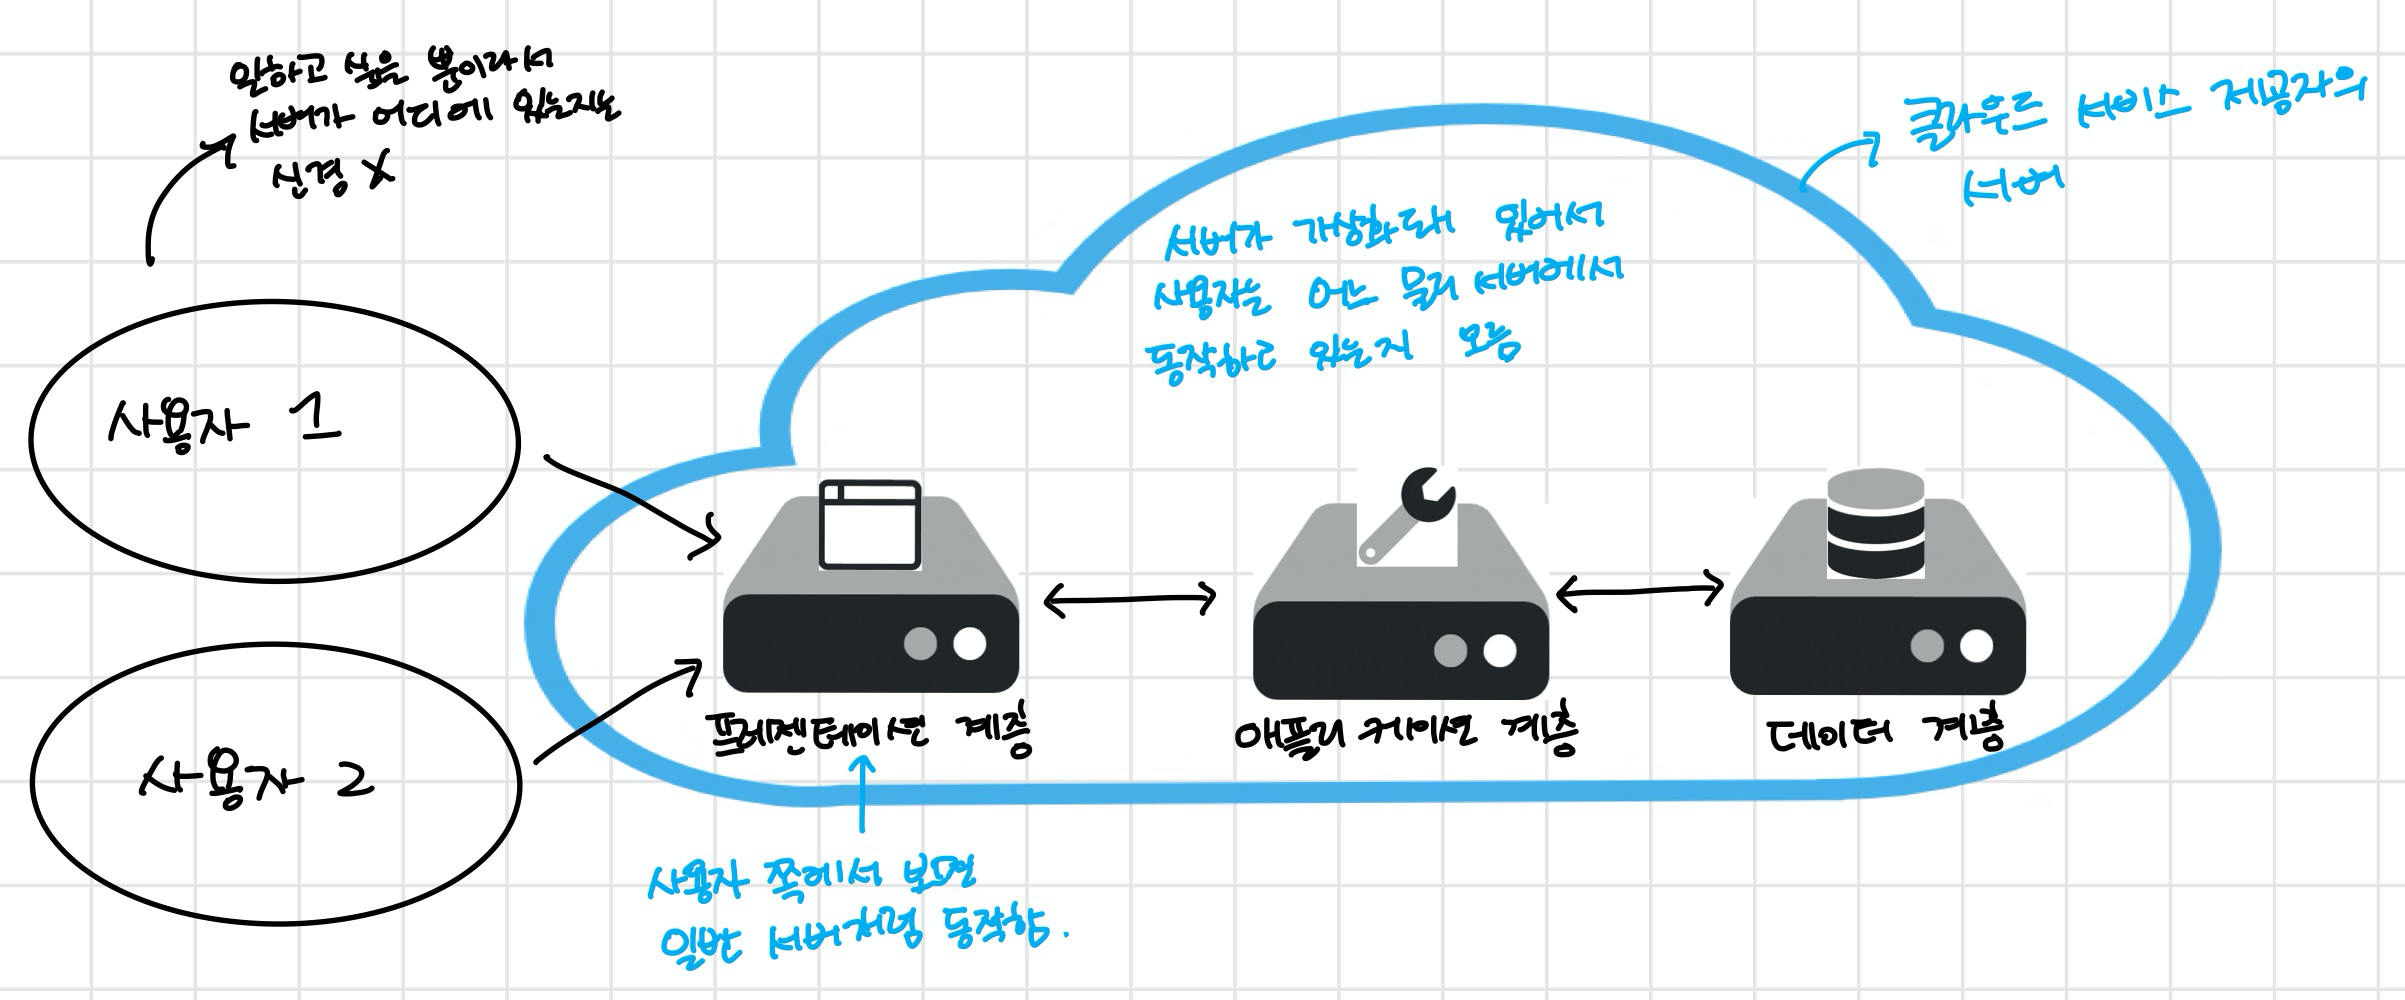 일하고 싶을 뿐이라서
서버가 어디에 있는지는
신경 X
클라우드 서비스 제공자의
서버
서버가 가상화돼 있어서
사용자는 어느 물리 서버에서
동작하고 있는지 모름
사용자 1
사용자 2
프레젠테이션 계층
애플리케이션 계층
데이터 계층
사용자 쪽에서 보면
일반 서버처럼 동작함.